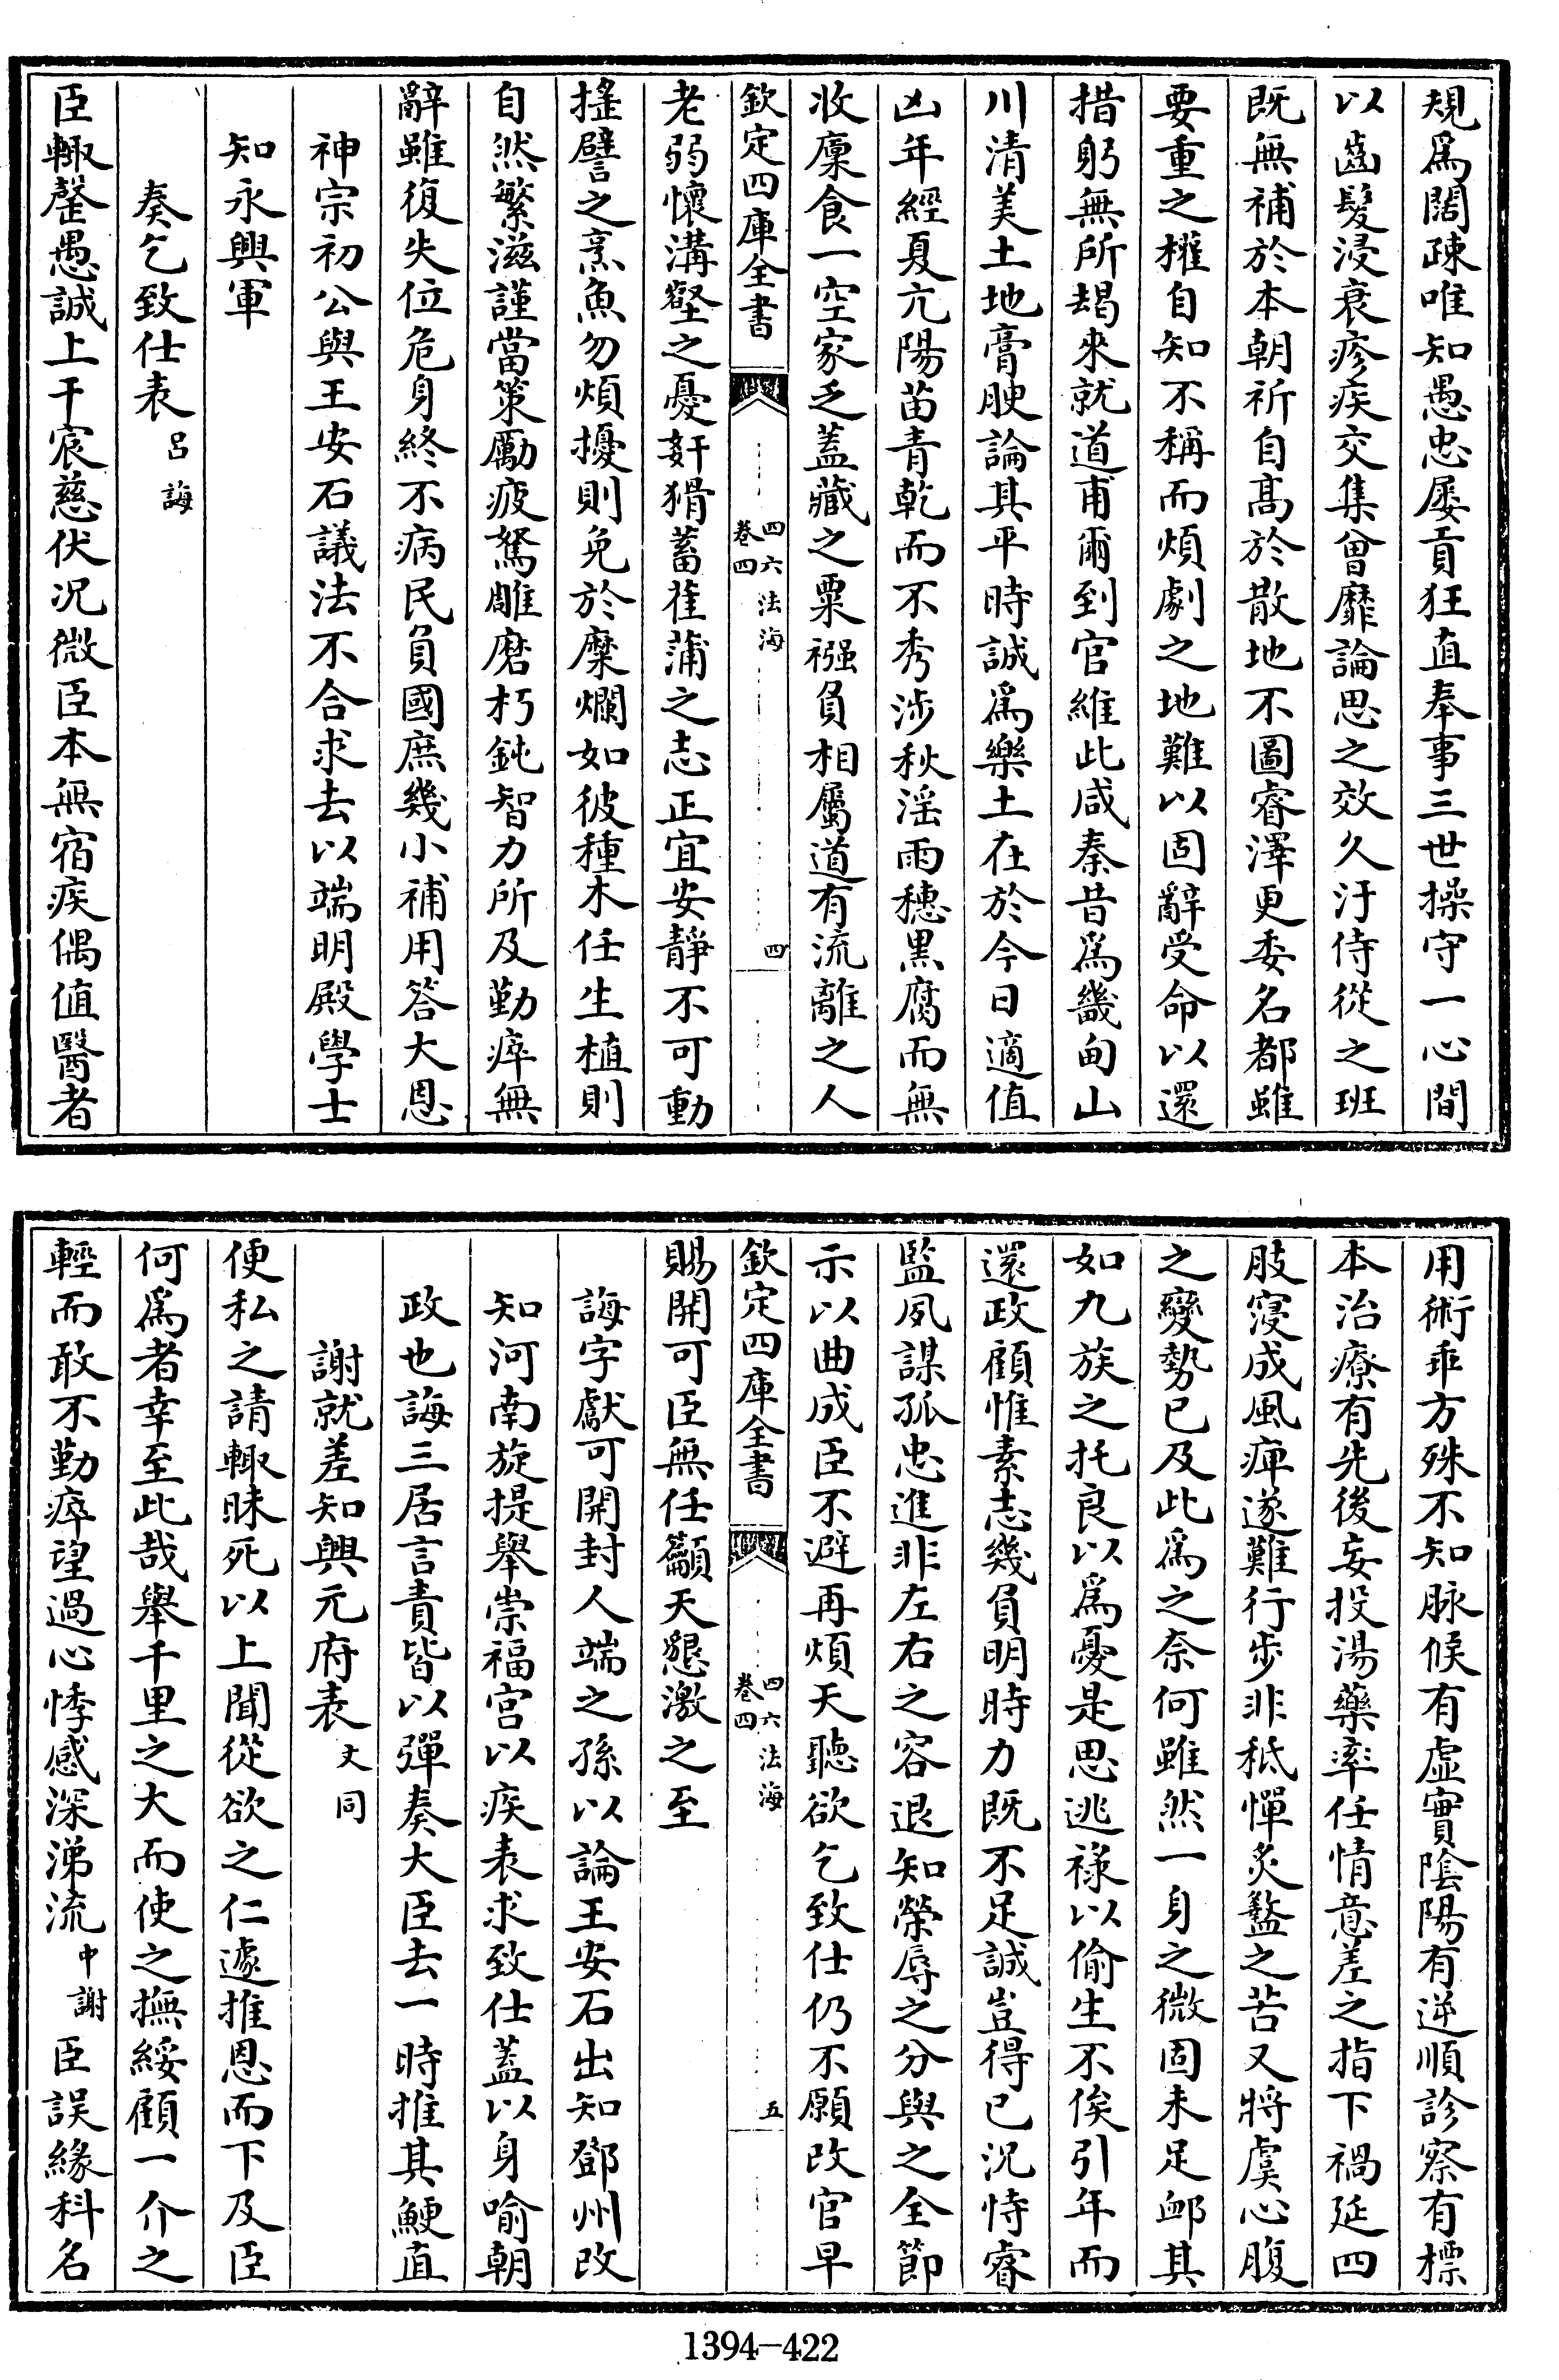 規爲闊疎唯知愚忠屢貢狂直奉事三世操守一心間
以齒髮浸衰疹疾交集曾靡論思之效久汙侍從之班
既無補於本朝祈自髙於散地不圖睿澤更委名都雖
要重之權自知不稱而煩劇之地難以固辭受命以還
措躬無所朅來就道甫爾到官維此咸秦昔爲畿甸山
川清美土地膏腴論其平時誠爲樂土在於今日適值
凶年經夏亢陽苗青乾而不秀涉秋淫雨穗黒腐而無
收廩食一空家乏蓋藏之粟襁負相屬道有流離之人
欽定四庫全書
四六法海
卷四
四
老弱懷溝壑之憂姧猾蓄萑蒲之志正宜安靜不可動
搖譬之烹魚勿煩擾則免於糜爛如彼種木任生植則
自然繁滋謹當策勵疲駑雕磨朽鈍智力所及勤瘁無
辭雖復失位危身終不病民負國庶幾小補用答大恩
神宗初公與王安石議法不合求去以端明殿學士
知永興軍
奏乞致仕表 呂誨
臣輒罄愚誠上干宸慈伏况微臣本無宿疾偶值醫者
用術乖方殊不知脉候有虚實陰陽有逆順診察有標
本治療有先後妄投湯藥率任情意差之指下禍延四
肢寖成風痺遂難行步非秪憚炙盭之苦又將虞心腹
之變勢已及此爲之奈何雖然一身之微固未足䘏其
如九族之托良以爲憂是思逃祿以偷生不俟引年而
還政顧惟素志幾負明時力既不足誠豈得已况恃睿
監夙謀孤忠進非左右之容退知榮辱之分與之全節
示以曲成臣不避再煩天聽欲乞致仕仍不願改官早
欽定四庫全書
四六法海
卷四
五
賜開可臣無任籲天懇激之至
誨字獻可開封人端之孫以論王安石出知鄧州改
知河南旋提舉崇福宮以疾表求致仕蓋以身喻朝
政也誨三居言責皆以彈奏大臣去一時推其鯁直
謝就差知興元府表 文同
便私之請輒昧死以上聞從欲之仁遽推恩而下及臣
何爲者幸至此哉舉千里之大而使之撫綏顧一介之
輕而敢不勤瘁望過心悸感深涕流 中謝 臣誤緣科名
1394-422